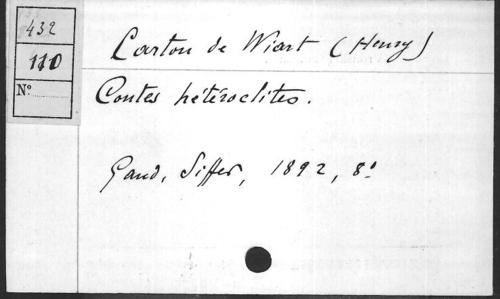 432
110
N°
Carton de Wiart (Henry)
Contes hétéroclites.
Gand, Siffer, 1892, 8°